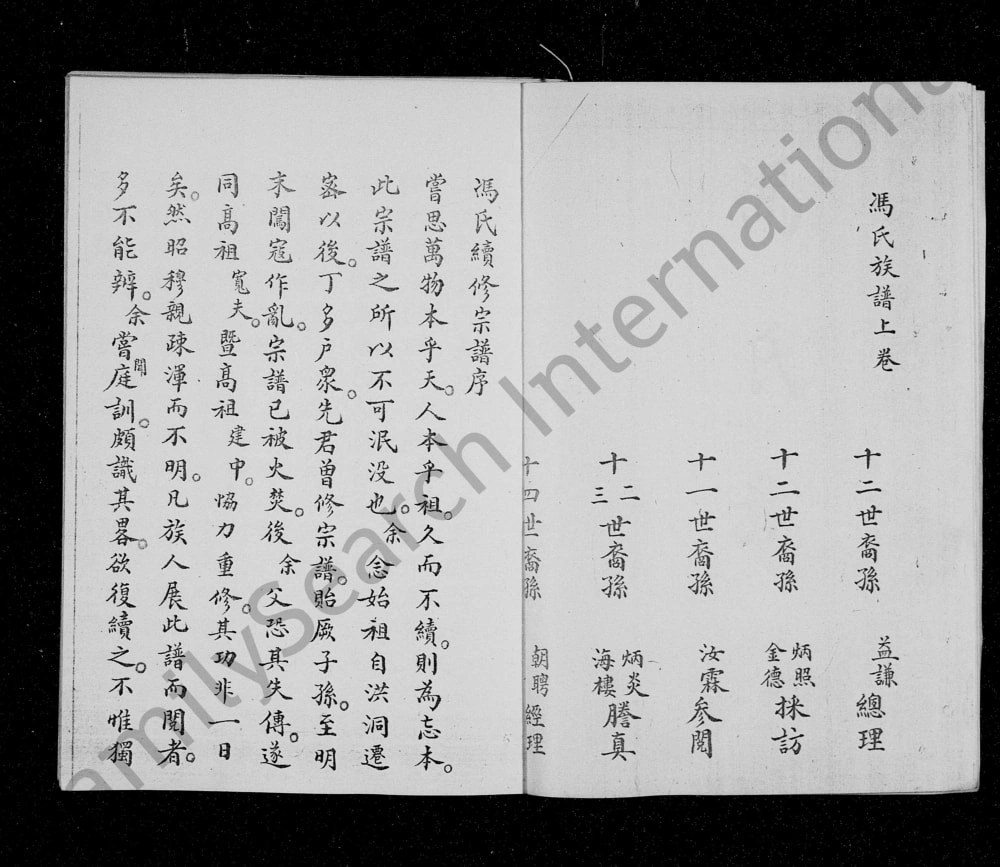 馮氏族譜上卷
十二世裔孫 益謙總理
十二世裔孫 炳照 金德 採訪
十一世裔孫 汝霖參閱
十二 三 世裔孫 炳炎 海樓 謄真
十四世裔孫 朝聘經理
馮氏續修宗譜序
嘗思萬物本乎天。人本乎祖。久而不續。則為忘本。
此宗譜之所以不可泯没也。余念始祖自洪洞遷
密以後。丁多户衆。先君曾修宗譜。貽厥子孫。至明
末闖寇作亂。宗譜已被火焚。後余父恐其失傳。遂
同高祖寬夫。暨高祖建中。恊力重修。其功非一日
矣。然昭穆親疎渾而不明。凡族人展此譜而閱者。
多不能辨。余嘗聞庭訓。頗識其畧。欲復續之。不惟獨
FamilySearch International